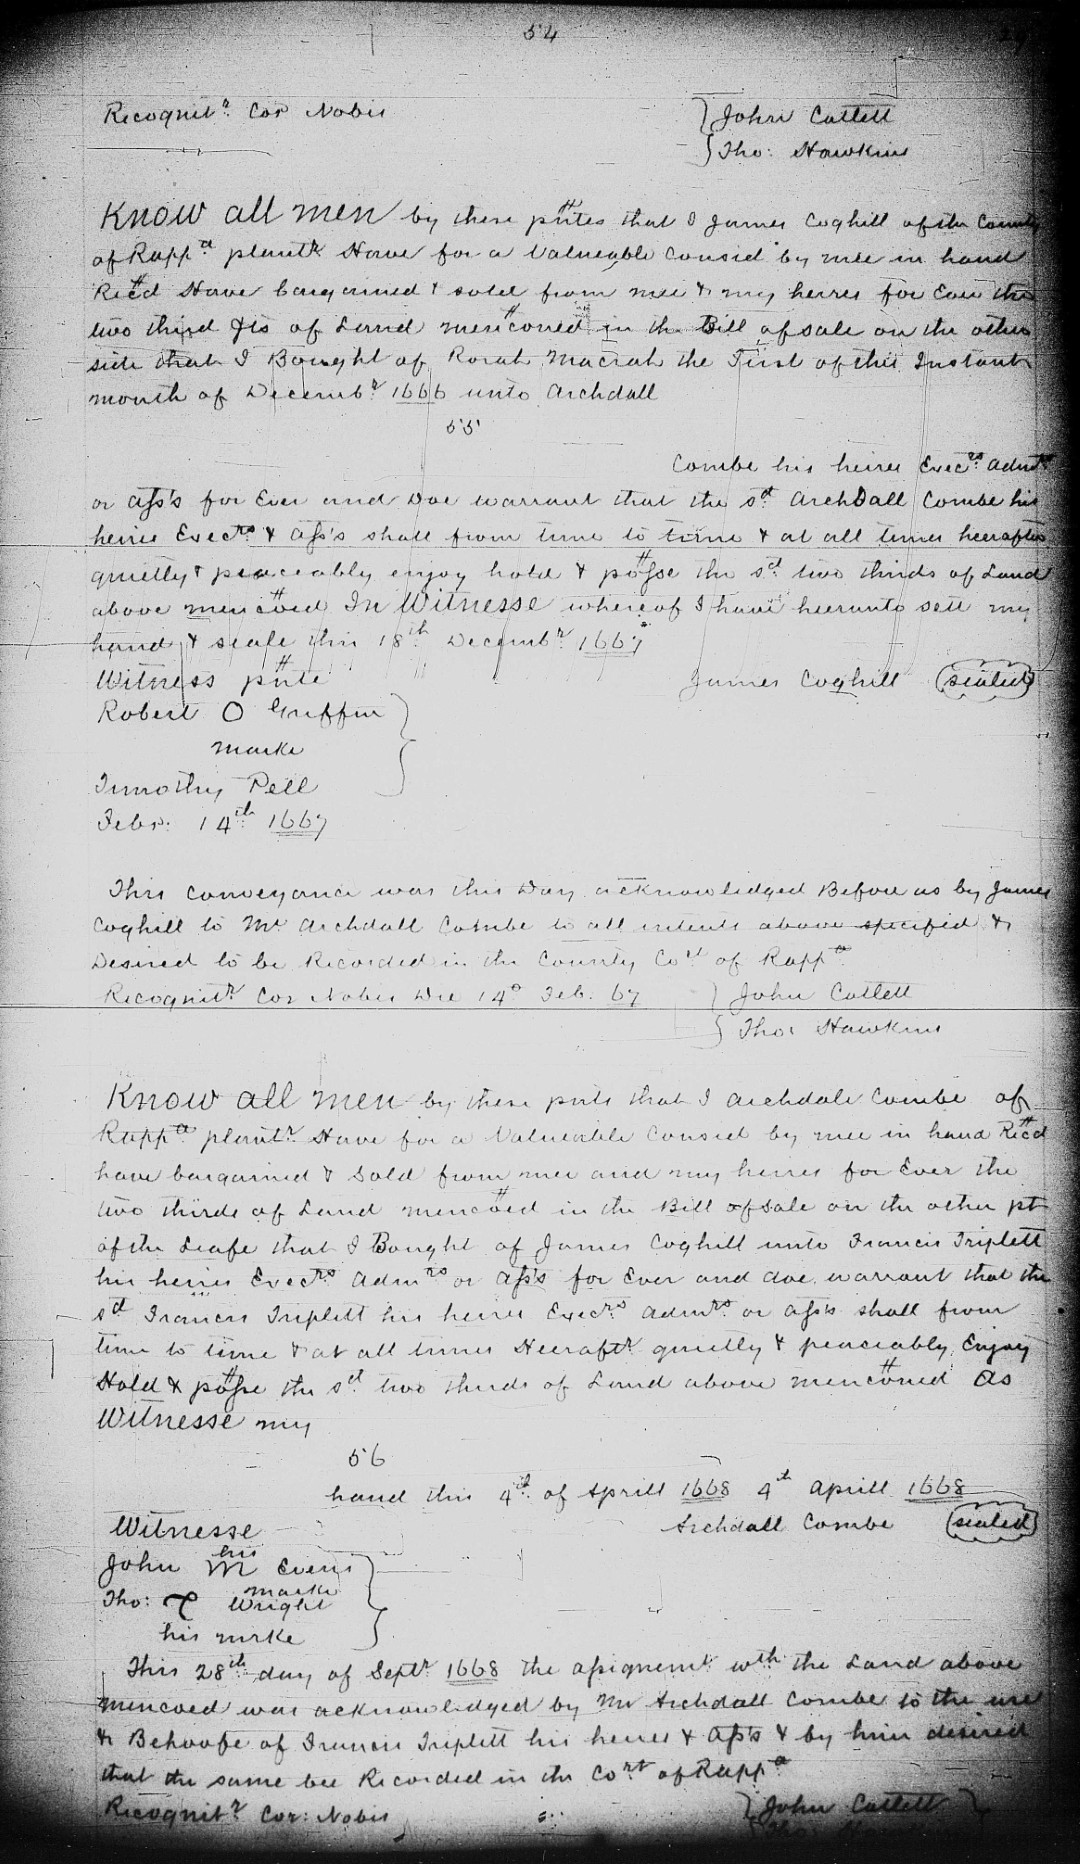 54
Recognitr. Cor Nobis } John Catlett
} Tho: Hawkins
Know all men by these pntes that I James Coghill of the County
of Rappa plantr Have for a Valueable Consid by mee in hand
Recd Have bargained & sold from mee & my heires for Ever the
two third pts of Land menconed in the Bill of sale on the other
side that I Bought of Rorah Macrah the First of this Instant
month of Decembr 1666 unto Archdall
55
Combe his heires Execrs admrs
or Ass's for Ever and Doe warrant that the sd ArchDall Combe his
heires Execrs & Ass's shall from time to time & at all times heerafter
quietly & peaceably enjoy hold & posse the sd two thirds of Land
above mencoed In Witnesse whereof I have heerunto sett my
hand & seale this 18th Decembr 1667
Witness pnte James Coghill (sealed)
Robert O Griffin }
marke
Timothy Pell
Febr: 14th 1667
This conveyance was this Day acknowledged Before us by James
Coghill to Mr Archdall Combe to all intents above specified &
Desired to be Recorded in the County Cort of Rappa
Recognitr Cor Nobis Die 14o Feb. 67 } John Catlett
} Tho: Hawkins
Know all men by these pnts that I Archdale Combe of
Rappa plantr Have for a Valueable Consid by mee in hand Recd
have bargained & Sold from mee and my heires for Ever the
two thirds of Land mencoed in the Bill of Sale on the other pt
of the Leafe that I Bought of James Coghill unto Francis Triplett
his heires Execrs Admrs or Ass for Ever and doe warrant that the
sd Francis Triplett his heires Execrs Admrs or Ass shall from
time to time & at all times Heeraftr quietly & peaceably Enjoy
Hold & posse the sd two thirds of Land above menconed As
Witnesse my
56
hand this 4th of Aprill 1668 4th Aprill 1668
Witnesse Archdall Combe (sealed)
John his M Evens }
Tho: T marke Wright
his mrke
This 28th day of Septr 1668 the assignemt wth the Land above
mencoed was acknowledged by Mr Archdall Combe to the use
& Behoofe of Francis Triplett his heires & Ass's & by him desired
that the same bee Recorded in the Cort of Rappa
Recognitr Cor: Nobis } John Catlett }
Tho: Hawkins